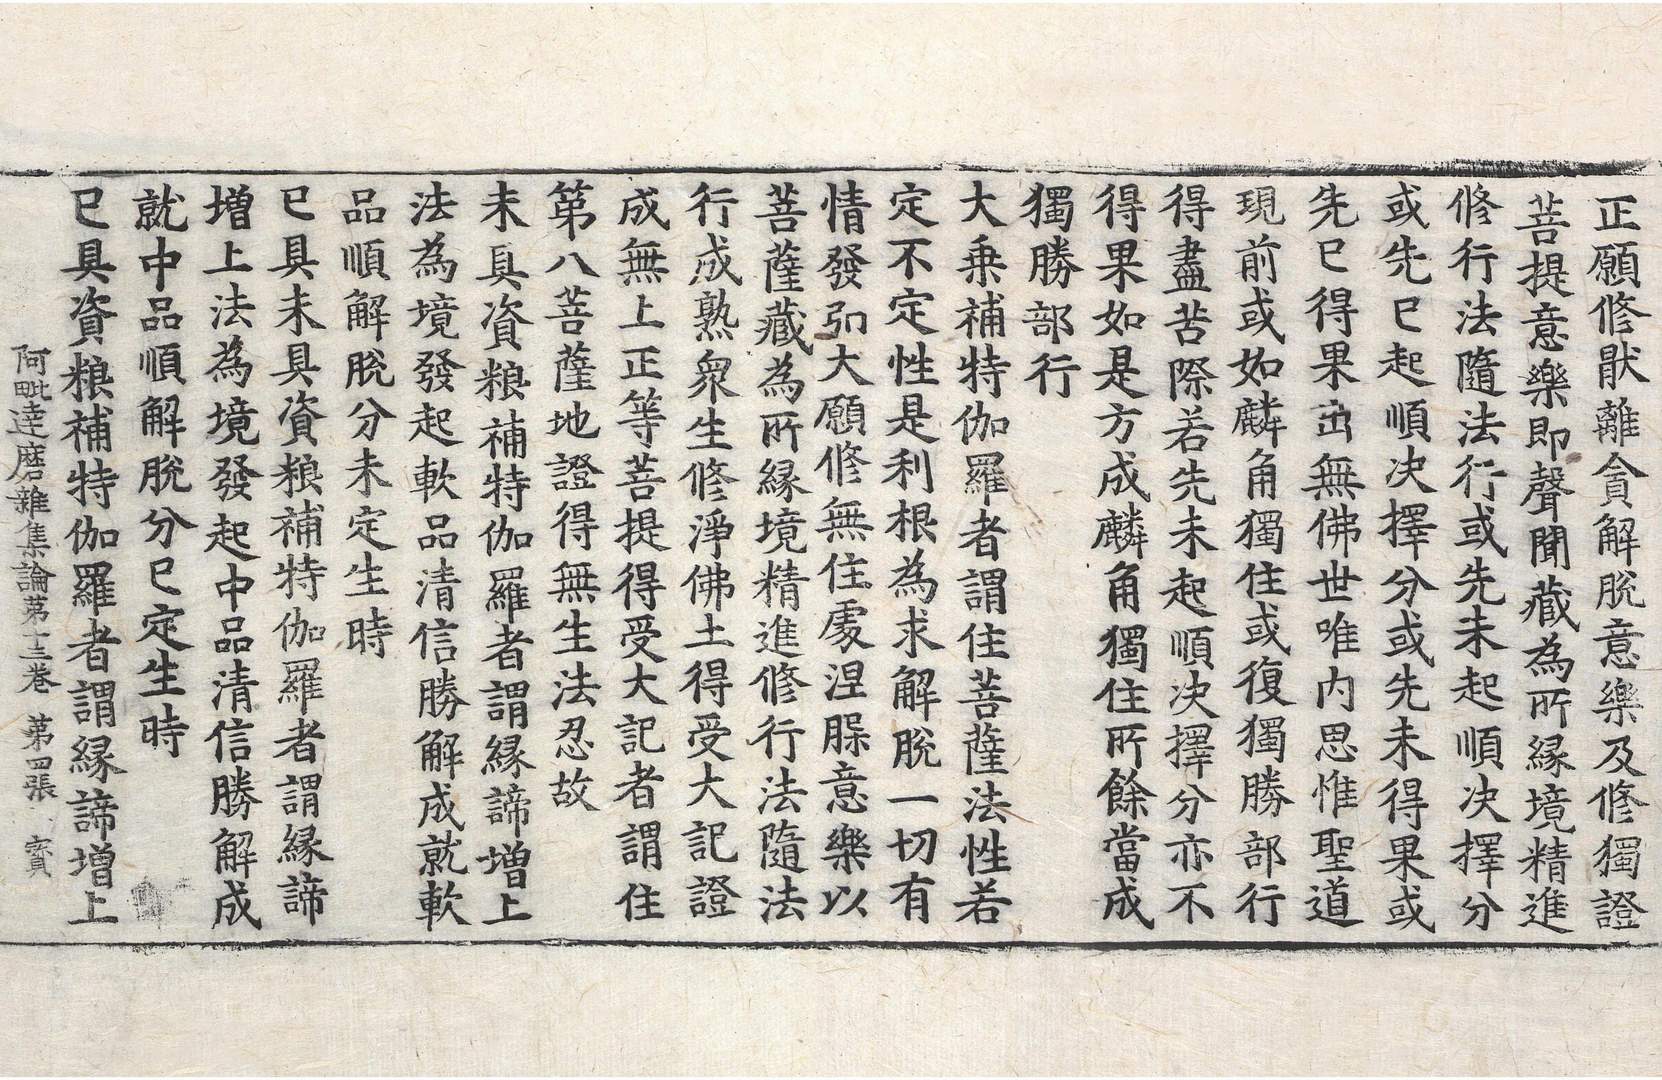 正願修猒離貪解脫意樂及修獨證
菩提意樂即聲聞藏為所緣境精進
修行法隨法行或先未起順决擇分
或先已起順决擇分或先未得果或
先已得果出無佛世唯內思惟聖道
現前或如麟角獨住或復獨勝部行
得盡苦際若先未起順决擇分亦不
得果如是方成麟角獨住所餘當成
獨勝部行
大乗補特伽羅者謂住菩薩法性若
定不定性是利根為求解脫一切有
情發弘大願修無住處涅槃意樂以
菩薩藏為所緣境精進修行法隨法
行成熟衆生修淨佛土得受大記證
成無上正等菩提得受大記者謂住
第八菩薩地證得無生法忍故
未具資粮補特伽羅者謂緣諦增上
法為境發起軟品清信勝解成就軟
品順解脫分未定生時
已具未具資粮補特伽羅者謂緣諦
增上法為境發起中品清信勝解成
就中品順解脫分已定生時
已具資粮補特伽羅者謂緣諦增上
阿毗達磨雜集論第十三卷 第四張 寳